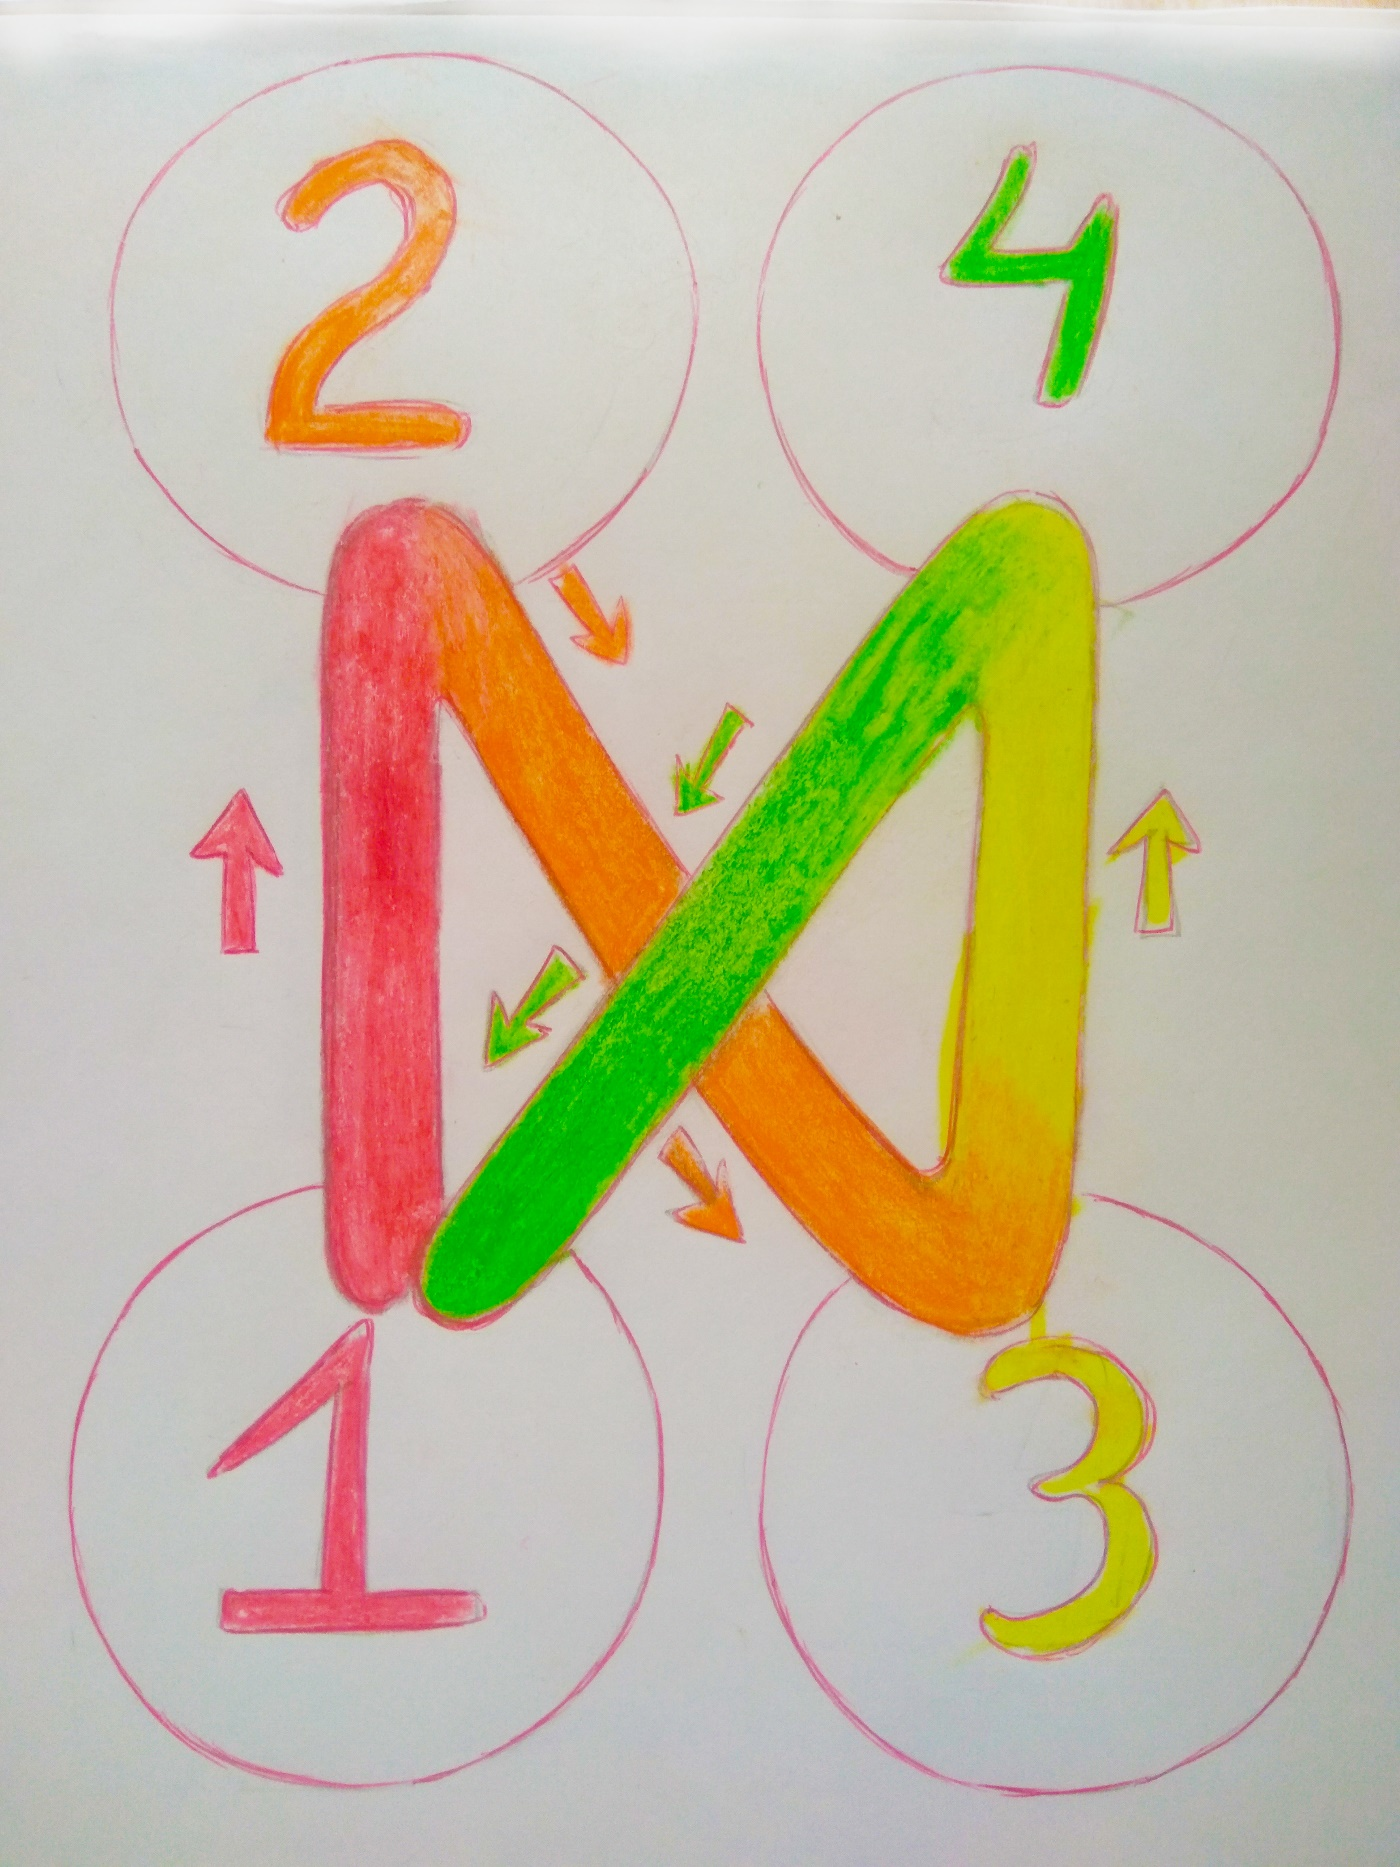 2 4
1 3